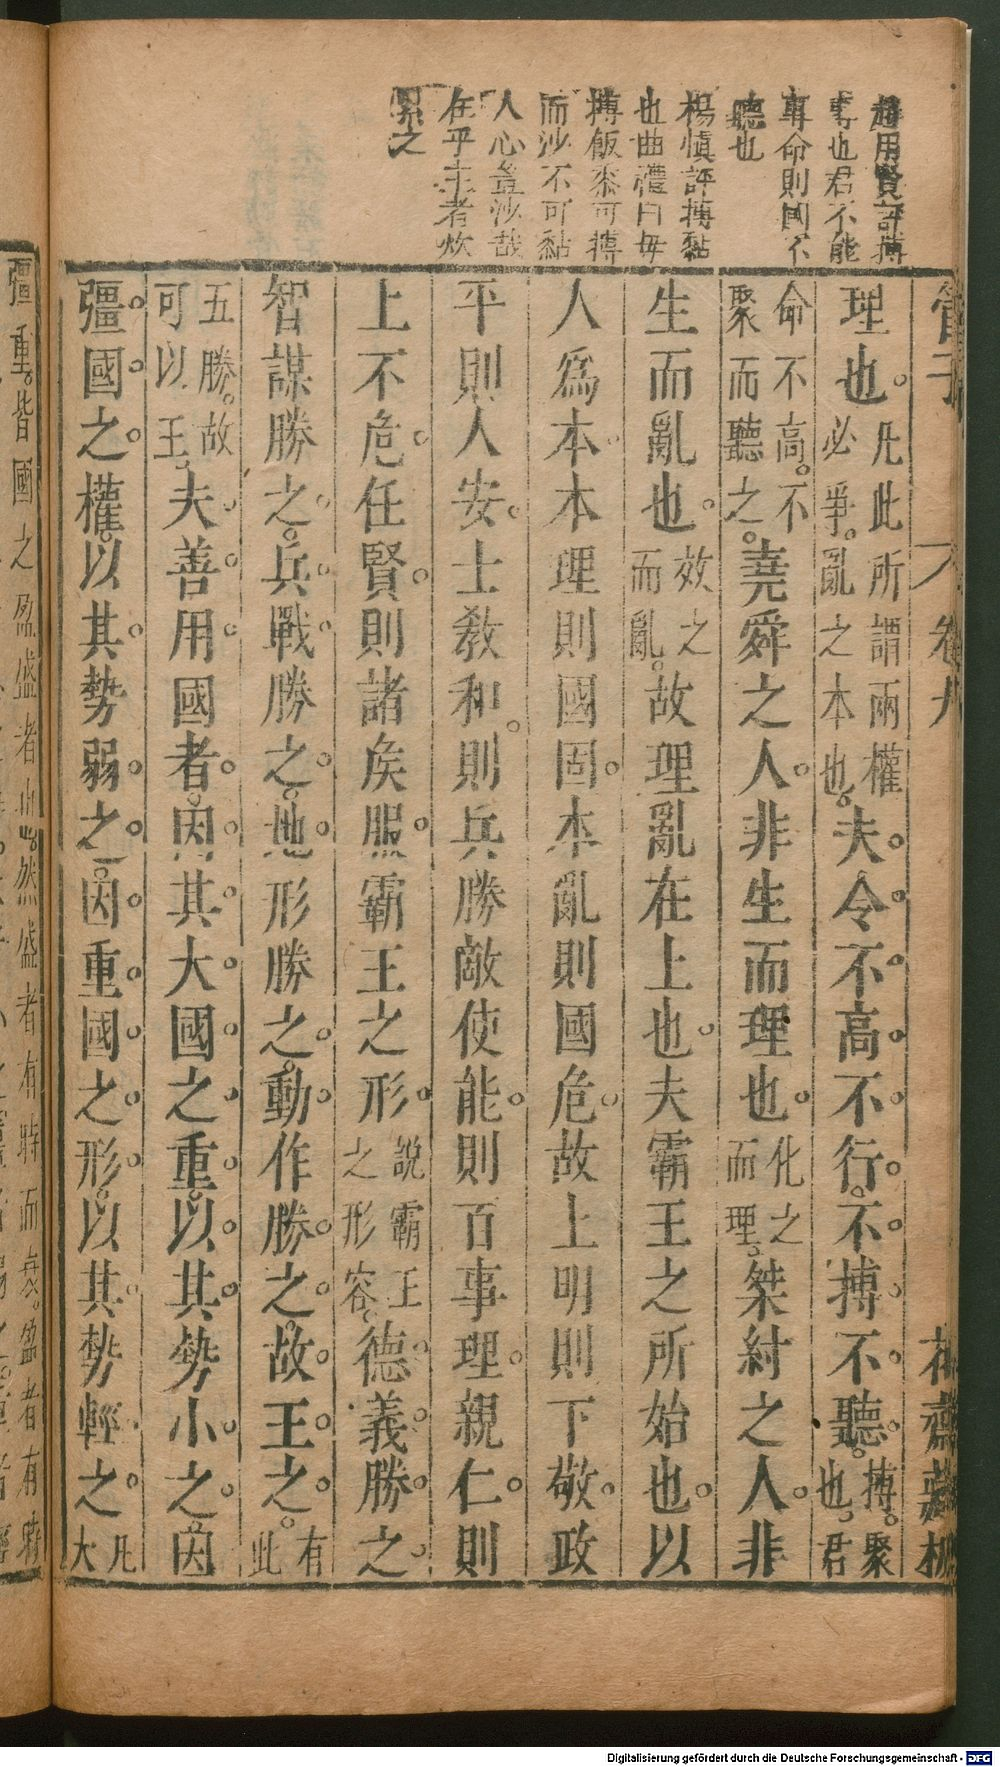 趙用賢評摶
專也君不能
專命則國不
聽也
楊慎評摶黏
也曲禮曰毋
摶飯黍可摶
而沙不可黏
人心豈沙哉
在乎主者炊
累之
管子 卷九 花齋藏板
理也凡此所謂兩權必爭亂之本也夫令不高不行不摶不聽摶聚也君
命不高不聚而聽之堯舜之人非生而理也化之而理桀紂之人非
生而亂也效之而亂故理亂在上也夫霸王之所始也以
人爲本本理則國固本亂則國危故上明則下敬政
平則人安士教和則兵勝敵使能則百事理親仁則
上不危任賢則諸矦服霸王之形說霸王之形容德義勝之
智謀勝之兵戰勝之地形勝之動作勝之故王之有此
五勝故可以王夫善用國者因其大國之重以其勢小之因
彊國之權以其勢弱之因重國之形以其勢輕之凡大
彊重皆國之盈盛者也然盛者有時而衰盈者有時
Digitalisierung gefördert durch die Deutsche Forschungsgemeinschaft - DFG